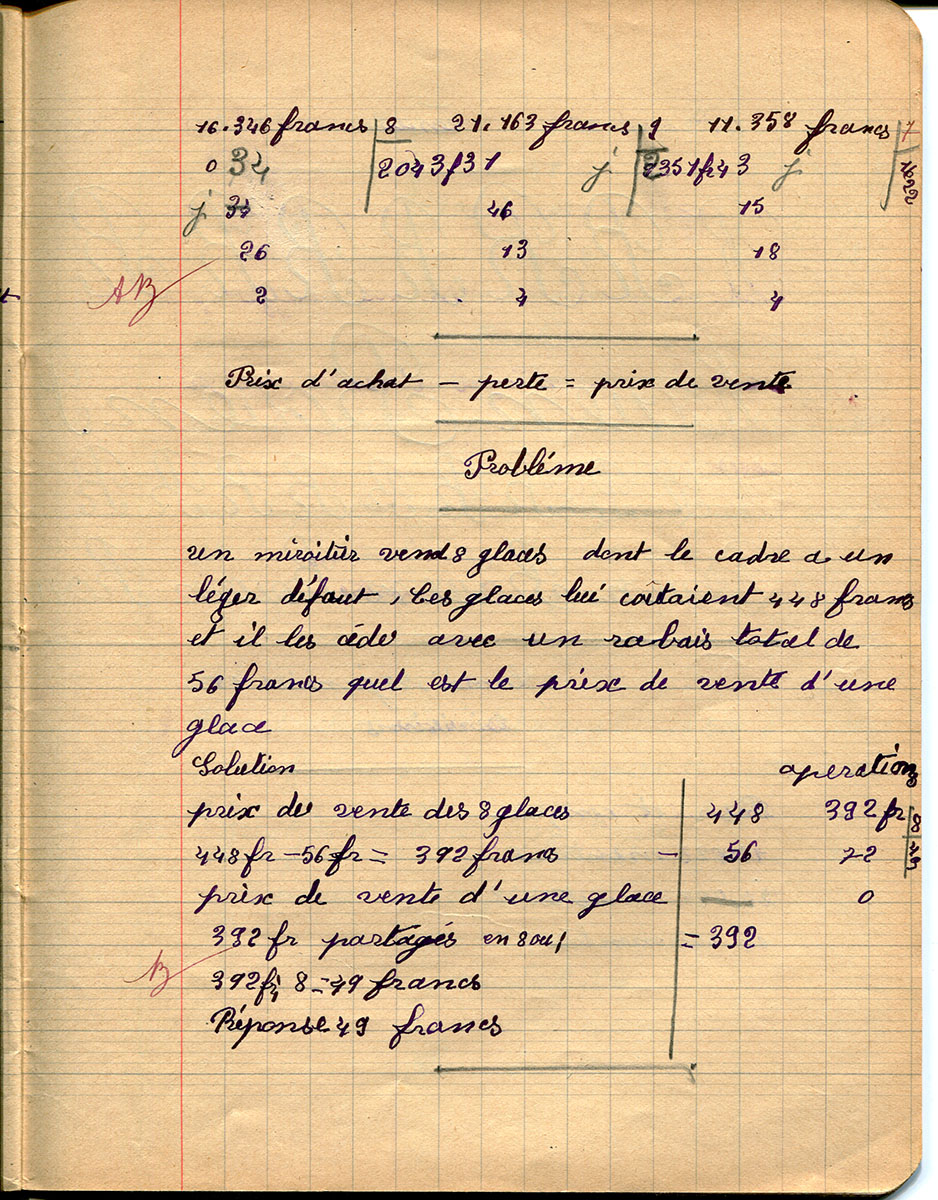 16.346 francs 8 21.163 francs 9 11.358 francs 7
0 34 2043f31 j 2351fr43 j 1622
j 34 46 15
26 13 18
AB 2 4 4
Prix d'achat - perte = prix de vente
Probléme
un miroitier vend 8 glaces dont le cadre a un
léger défaut, Ces glaces lui coûtaient 448 francs
et il les cède avec un rabais total de
56 francs quel est le prix de vente d'une
glace
Solution operations
prix de vente des 8 glaces 448 392 fr 8
448fr - 56fr = 392 francs - 56 72 49
prix de vente d'une glace 0
392 fr partagés en 8 ou = 392
B
392fr: 8 = 49 francs
Réponse 49 francs